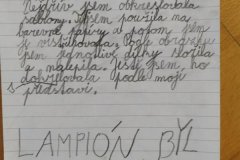 Nejdřív jsem obkreslovala
šablony. Potom použila na
barevné papíry a potom jsem
je vystřihovala. Podle obrázku
jsem jednotlivé dílky složila
a nalepila. Ještě jsem ho
dokreslovala podle mojí
představi.
LAMPIÓN BYL